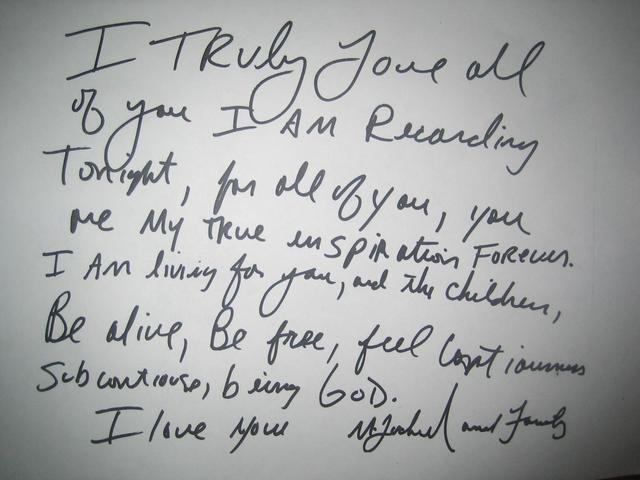 I TRuly Love all
of you I AM Recording
Tonight, for all of you, you
are My TRue inspiration Forever.
I AM living for you, and the children,
Be alive, Be free, feel
being GOD.
I love you Michael and Family